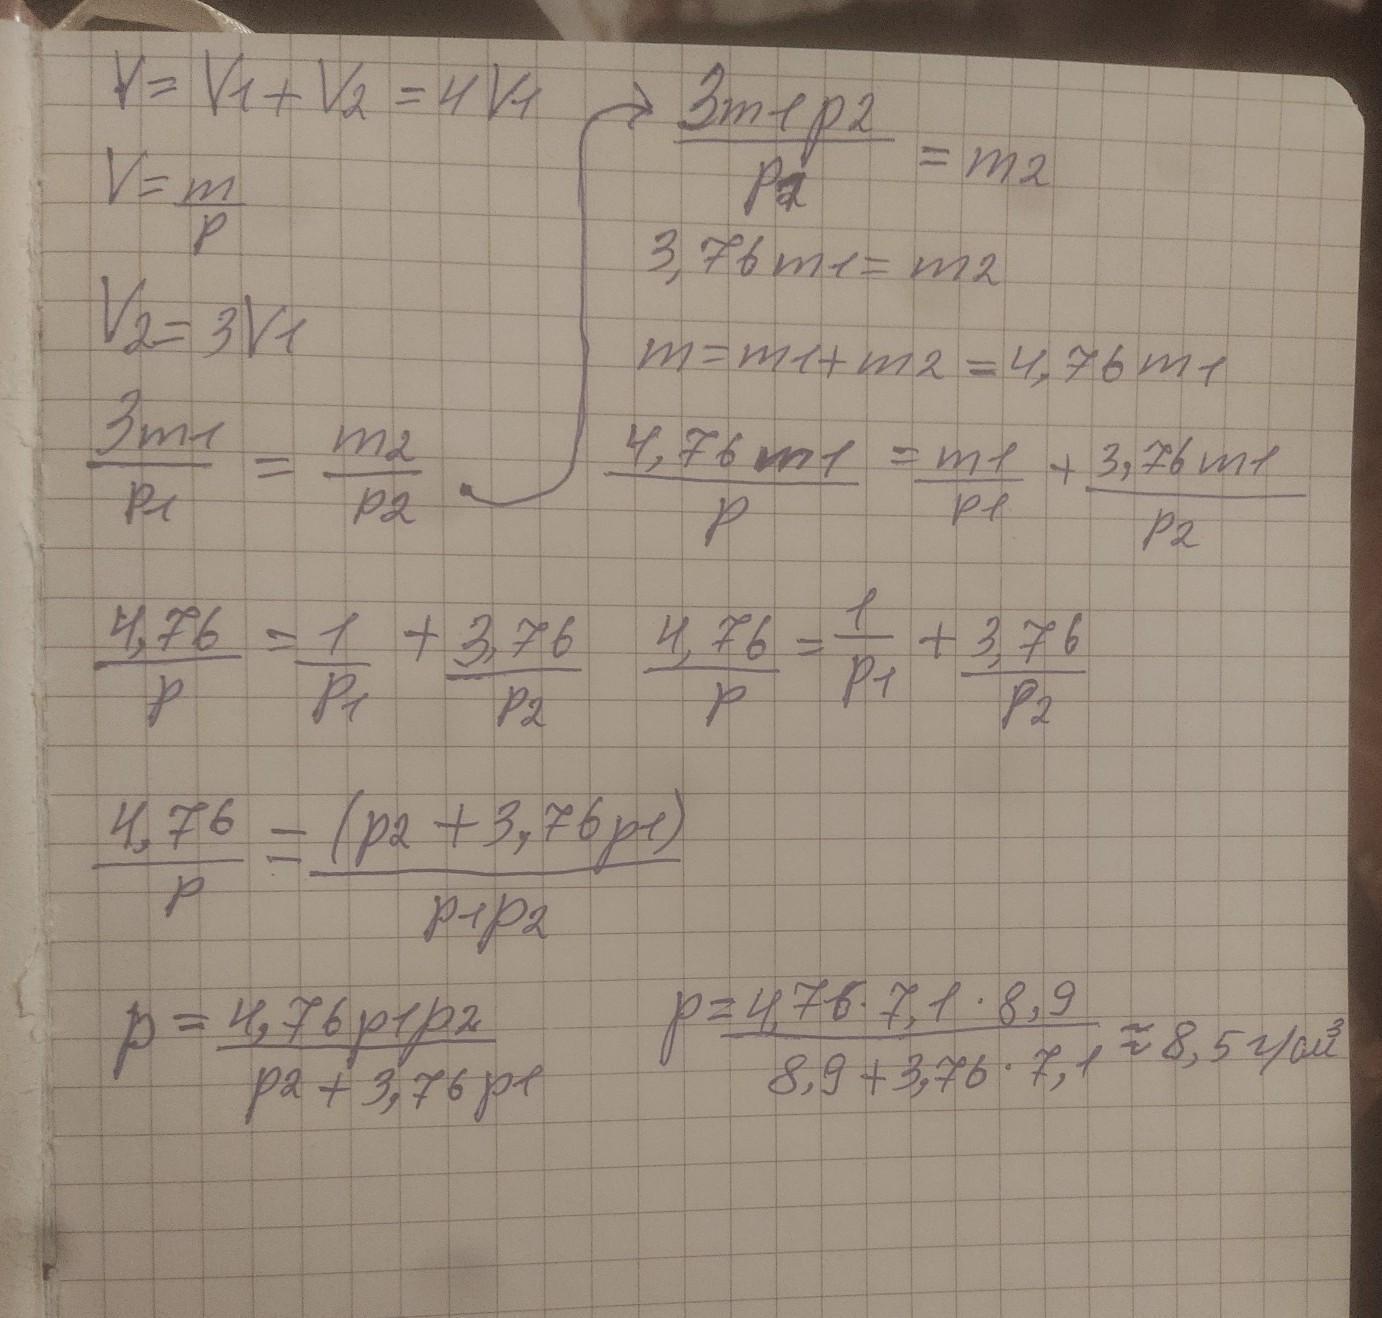 V = V1 + V2 = 4V1
V = m/p
V2 = 3V1
3m1/p1 = m2/p2
3m1p2/p1 = m2
3,76m1 = m2
m = m1 + m2 = 4,76m1
4,76m1/p = m1/p1 + 3,76m1/p2
4,76/p = 1/p1 + 3,76/p2
4,76/p = 1/p1 + 3,76/p2
4,76/p = (p2 + 3,76p1)/p1p2
p = 4,76p1p2/p2 + 3,76p1
p = 4,76 · 7,1 · 8,9/8,9 + 3,76 · 7,1 ≈ 8,5 г/см³